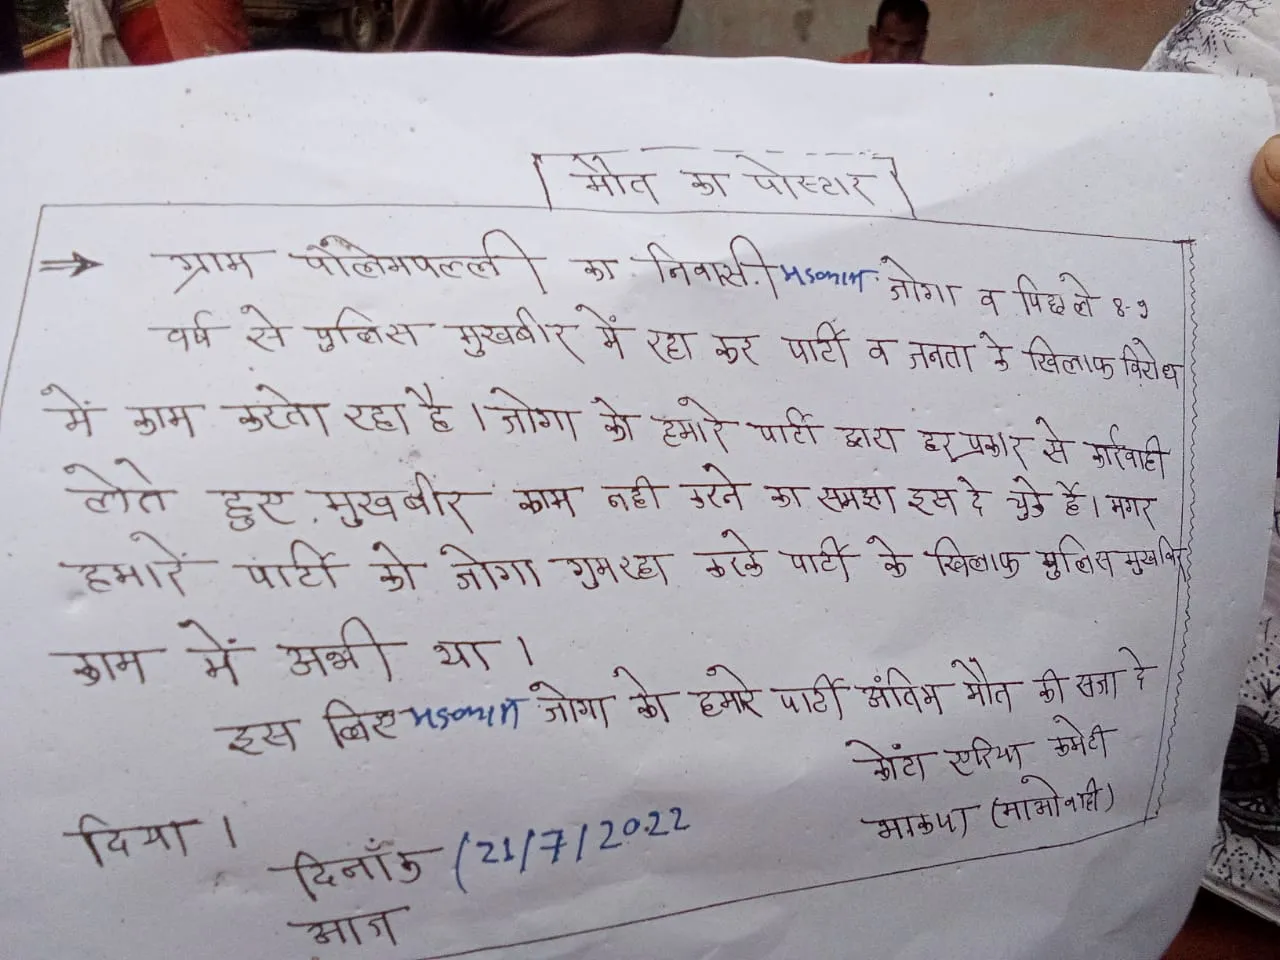 मौत का पोस्टर
→ ग्राम पोलेमपल्ली का निवासी जोगा व पिछले 8-9
वर्ष से पुलिस मुखबीर में रहा कर पार्टी व जनता के खिलाफ विरोध
में काम करता रहा है। जोगा को हमारे पार्टी द्वारा हर प्रकार से कार्रवाही
लेते हुए मुखबीर काम नही करने का समझा इस दे चुके है। मगर
हमारे पार्टी को जोगा गुमरहा करके पार्टी के खिलाफ पुलिस मुखबिर
काम में अभी था।
इस लिए जोगा को हमारे पार्टी अंतिम मौत की सजा दे
दिया।
कोंटा एरिया कमेटी
भाकपा (माओवादी)
दिनाँक (21/7/2022
आज